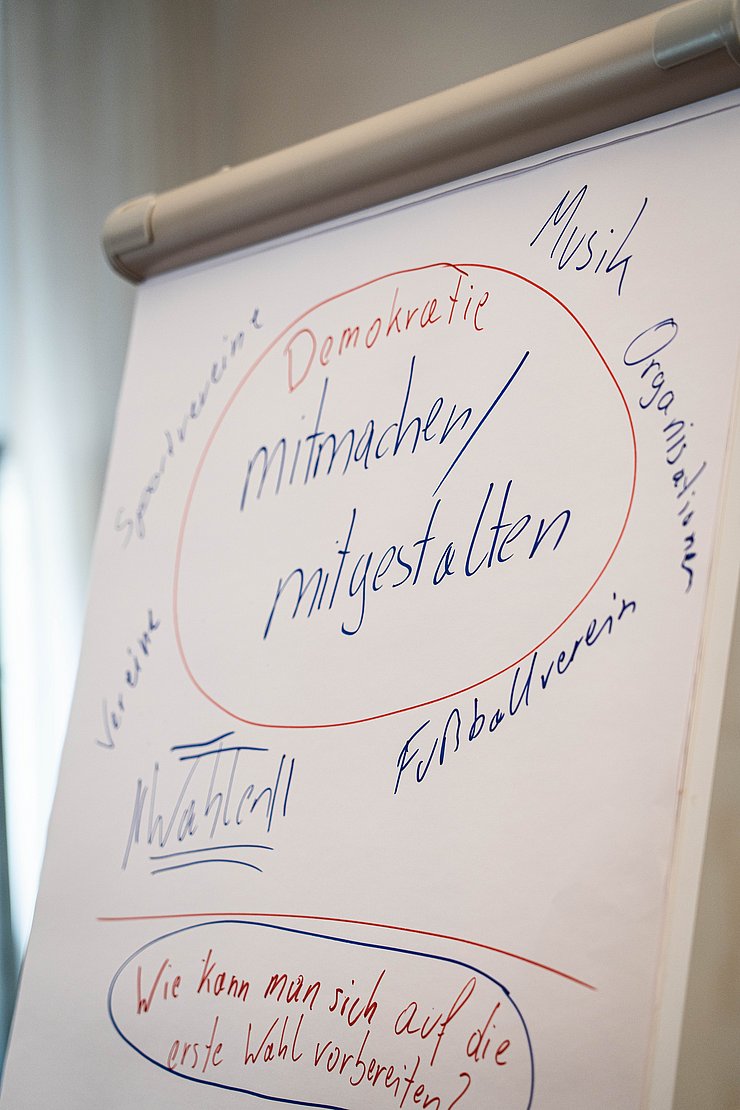 Musik
Sportvereine
Demokratie
Organisationen
mitmachen/
mitgestalten
Vereine
Fußballverein
Wahlen
Wie kann man sich auf die
erste Wahl vorbereiten?